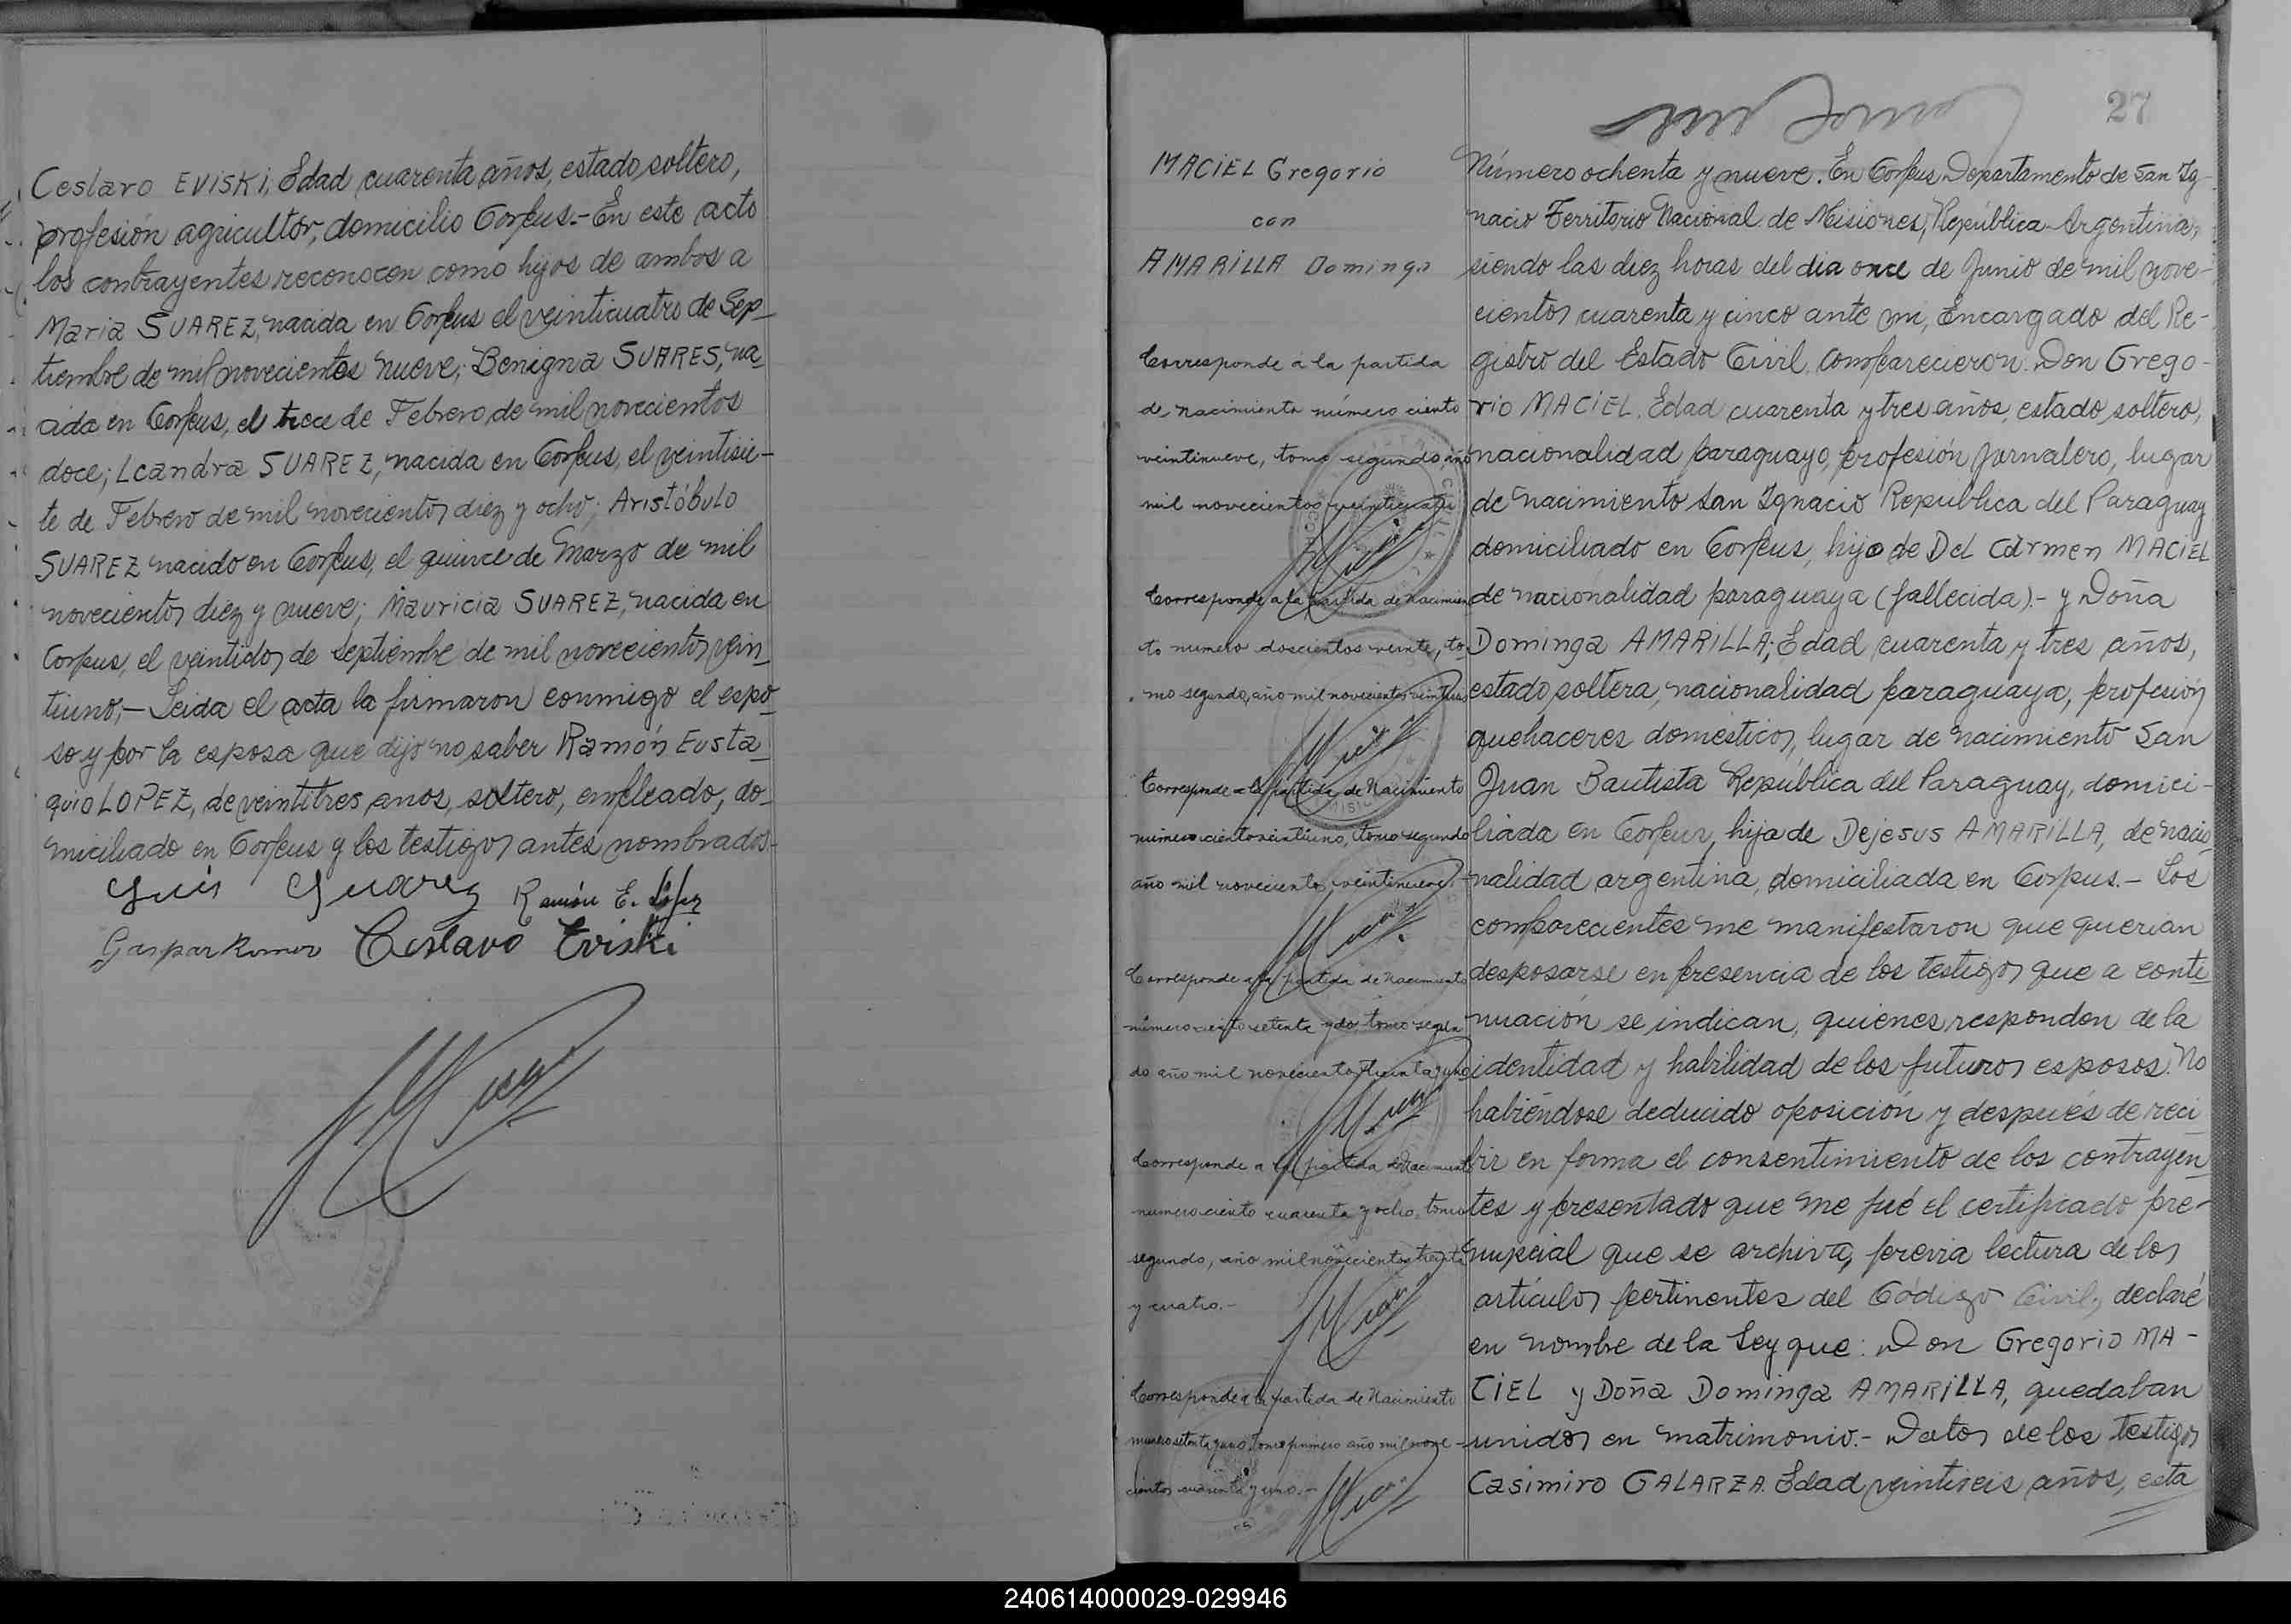 Ceslavo EVISKI; Edad cuarenta años, estado soltero,
profesión agricultor, domicilio Corpus.- En este acto
los contrayentes reconocen como hijos de ambos a
Maria SUAREZ, nacida en Corpus el veinticuatro de Sep-
tiembre de mil novecientos nueve; Benigna SUARES, na-
cida en Corpus, el trece de Febrero de mil novecientos
doce; Leandra SUAREZ, nacida en Corpus, el veintisie-
te de Febrero de mil novecientos diez y ocho; Aristóbulo
SUAREZ nacido en Corpus, el quince de Marzo de mil
novecientos diez y nueve; Mauricia SUAREZ, nacida en
Corpus, el veintidos de Septiembre de mil novecientos vein_
tiuno,- Leida el acta la firmaron conmigo el espo-
so y por la esposa que dijo no saber Ramón Eusta_
quio LOPEZ, de veintitres anos, soltero, empleado, do_
miciliado en Corpus y los testigos antes nombrados-
Luis Suarez Ramón E. López
Gaspar Ceslavo Eviski
27
MACIEL Gregorio
con
AMARILLA Dominga
Corresponde a la partida
de nacimiento número ciento
veintinueve, tomo segundo, año
mil novecientos
Corresponde a la partida de nacimien
to numero doscientos veinte, to
mo segundo, año mil novecientos
Corresponde a la partida de Nacimiento
número ciento veintiuno, tomo segundo
año mil novecientos veintinueve.
Corresponde a la partida de nacimiento
número ciento setenta y dos, tomo segun
do año mil novecientos treinta y uno
Corresponde a la partida de Nacimiento
numero ciento cuarenta y ocho, tomo
segundo, año mil novecientos treinta
y cuatro.-
Corresponde a la partida de Nacimiento
numero setenta y uno, tomo primero año mil nove-
cientos cuarenta y uno.-
Número ochenta y nueve. En Corpus Departamento de San Ig-
nacio Territorio Nacional de Misiones, República Argentina,
siendo las diez horas del dia once de Junio de mil nove-
cientos cuarenta y cinco ante mi, Encargado del Re-
gistro del Estado Civil, comparecieron. Don Grego-
rio MACIEL. Edad cuarenta y tres años, estado soltero,
nacionalidad paraguayo, profesión jornalero, lugar
de nacimiento San Ignacio República del Paraguay
domiciliado en Corpus, hijo de Del Carmen MACIEL
de nacionalidad paraguaya (fallecida).- y Doña
Dominga AMARILLA; Edad cuarenta y tres años,
estado soltera, nacionalidad paraguaya, profesión
quehaceres domésticos, lugar de nacimiento San
Juan Bautista República del Paraguay, domici-
liada en Corpus, hija de Dejesus AMARILLA, de nacio_
nalidad argentina, domiciliada en Corpus.- Los
comparecientes me manifestaron que querian
desposarse en presencia de los testigos que a conti_
nuación se indican, quienes responden de la
identidad y habilidad de los futuros esposos. No
habiéndose deducido oposición y después de reci_
bir en forma el consentimiento de los contrayen_
tes y presentado que me fué el certificado pre-
nupcial que se archiva, previa lectura de los
artículos pertinentes del Código Civil, declaré
en nombre de la Ley que: Don Gregorio MA-
CIEL y Doña Dominga AMARILLA, quedaban
unidos en matrimonio.- Datos de los testigos
Casimiro GALARZA. Edad veintiseis años, esta
240614000029-029946